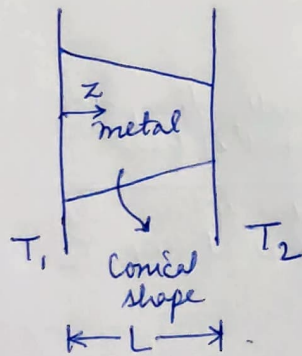 z
metal
T₁
T₂
Conical
shape
L